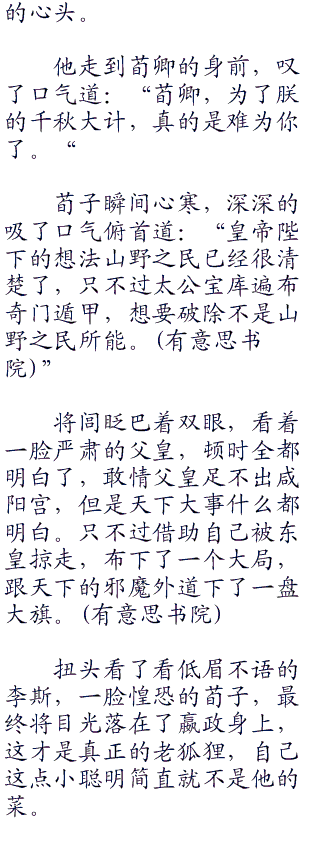 的心头。
他走到荀卿的身前，叹
了口气道：“荀卿，为了朕
的千秋大计，真的是难为你
了。“
荀子瞬间心寒，深深的
吸了口气俯首道：“皇帝陛
下的想法山野之民已经很清
楚了，只不过太公宝库遍布
奇门遁甲，想要破除不是山
野之民所能。(有意思书
院)”
将闾眨巴着双眼，看着
一脸严肃的父皇，顿时全都
明白了，敢情父皇足不出咸
阳宫，但是天下大事什么都
明白。只不过借助自己被东
皇掠走，布下了一个大局，
跟天下的邪魔外道下了一盘
大旗。(有意思书院)
扭头看了看低眉不语的
李斯，一脸惶恐的荀子，最
终将目光落在了嬴政身上，
这才是真正的老狐狸，自己
这点小聪明简直就不是他的
菜。